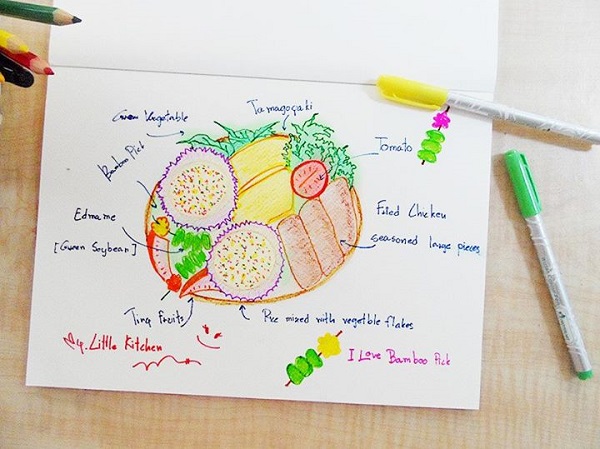 Green Vegetable
Tamagoyaki
Bamboo Pick
Tomato
Edmame
[Green Soybean]
Fried Chicken
seasoned large pieces
Tiny Fruits
Rice mixed with vegetble flakes
By. Little Kitchen
I Love Bamboo Pick